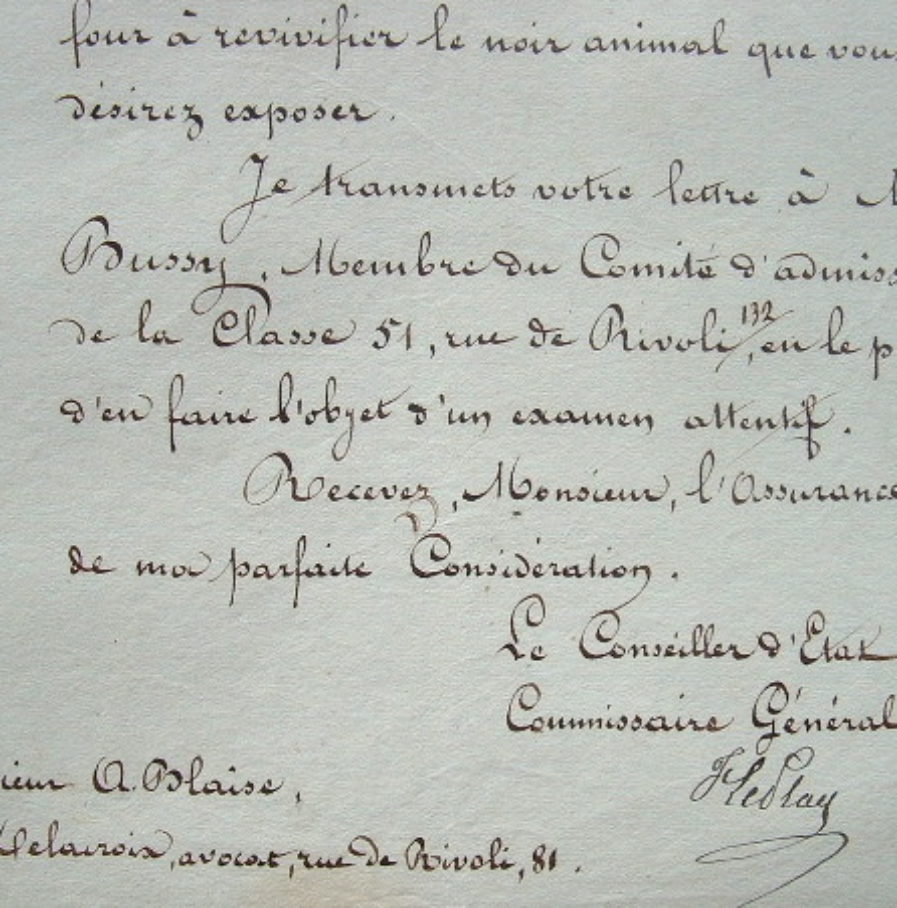 four à revivifier le noir animal que vous
désirez exposer.
Je transmets votre lettre à M
Bussy, Membre du Comité d'admiss
de la Classe 51, rue de Rivoli, 132, en le p
d'en faire l'objet d'un examen attentif.
Recevez, Monsieur, l'Assurance
de ma parfaite Considération.
Le Conseiller d'Etat
Commissaire Général
F LePlay
sieur A. Blaise,
Delacroix, avocat, rue de Rivoli, 81.